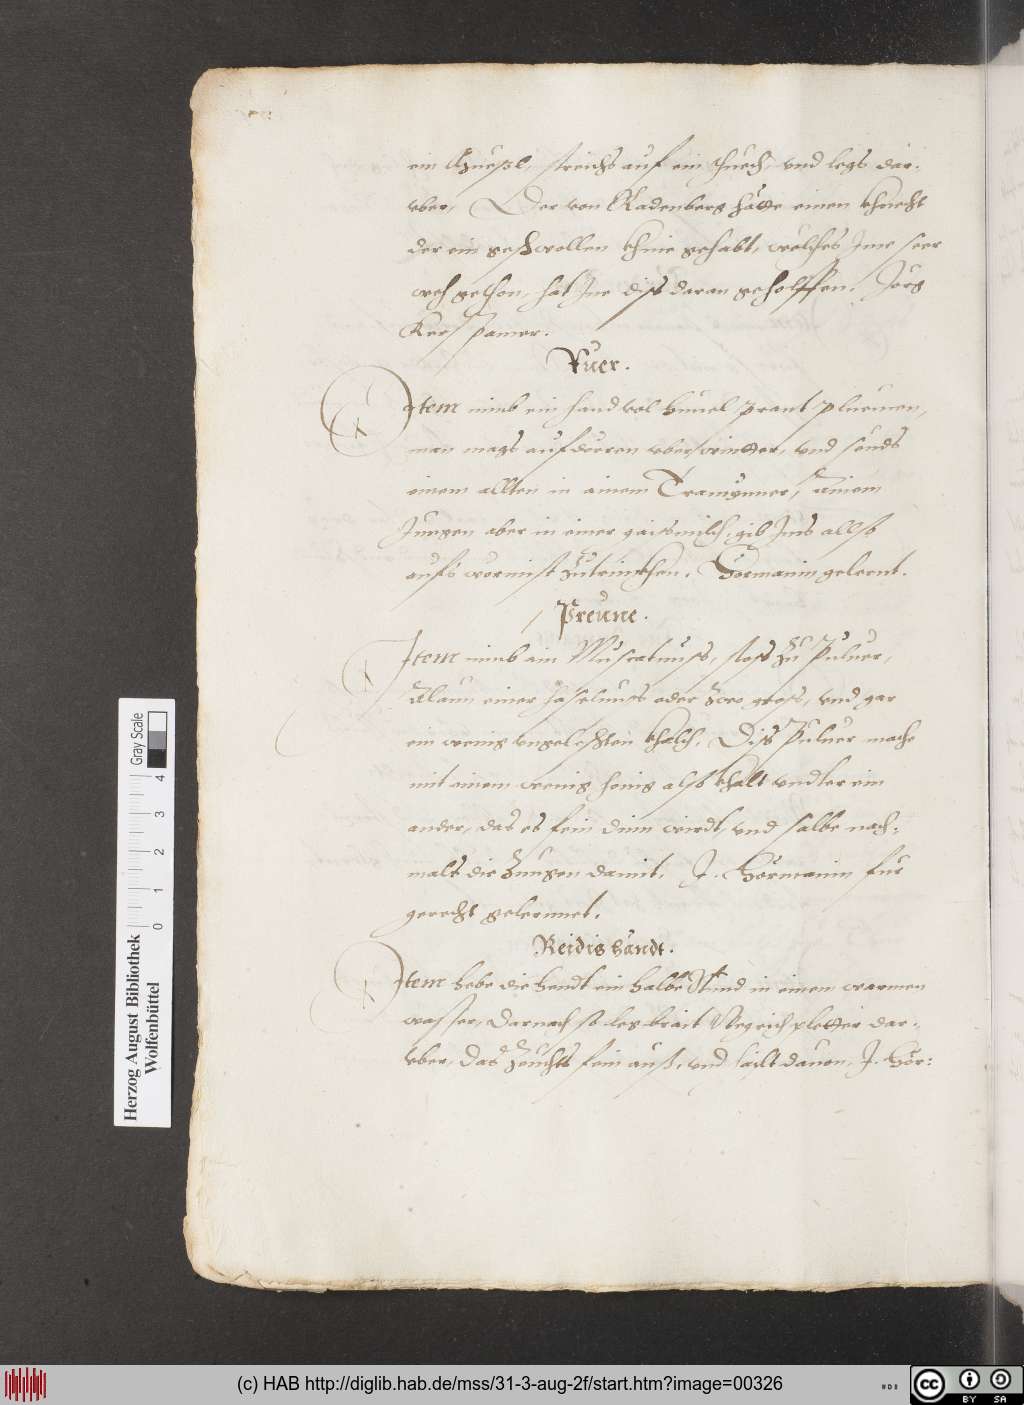 ein khüepl, streichs auf ein thuech, vnd legs dar-
vber, Der von Radenberg hatte einen khnecht
der ein geschwollen khnie gehabt, welches Jme seer
weh gethon, hat Jne diss daran geholffen. Jörg
Kerspamer.
Ruer.
Item nimb ein hand vol himel prant pluemen,
man mags aufdörren vber wintter, vnd seuds
einem allten in ainem Traminner, Ainem
Jungen aber in einer gaissmilch, gib Jms allso
aufs wermist zutrinckhen. Hörmanin gelernt.
Preüne.
Item nimb ain Muscatnuss, stoss zu Puluer,
Alaun einer haselnuss oder zwo gross, vnd gar
ein wenig vngeleschten khalch, Diss Puluer mache
mit einem wenig hönig also khalt vndter ein
ander, das es fein dinn wirdt, vnd salbe nach-
mals die Zungen damit. J. Hörmanin für
gerecht gelernnet.
Reidig händt.
Item hebe die hendt ein halbe Stund in einem warmen
wasser, Darnach so leg brait Wegreich pletter dar-
vber, das zeuchts fein auss, vnd hailt dauon, J. Hör:
Herzog August Bibliothek
Wolfenbüttel
0 1 2 3 4
Gray Scale
(c) HAB http://diglib.hab.de/mss/31-3-aug-2f/start.htm?image=00326
cc BY SA